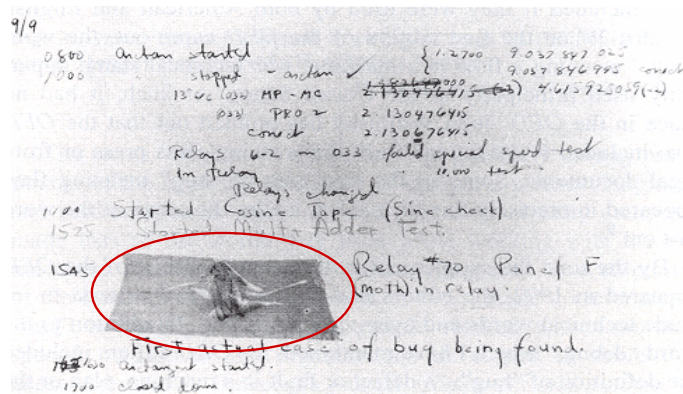 9/9
0800 Antan started { 1.2700 9.037 847 025
1000 stopped - antan ✓ 9.037 846 995 conect
13"uc (032) MP-MC 2.130476415 4.615925059(-2)
(033) PRO 2 2.130476415
conect 2.130676415
Relays 6-2 in 033 failed special speed test
in relay 10.000 test.
Relays changed
1100 Started Cosine Tape (Sine check)
1525 Started Mult + Adder Test.
1545 Relay #70 Panel F
(moth) in relay.
First actual case of bug being found.
1630 antangent started.
1700 closed down.